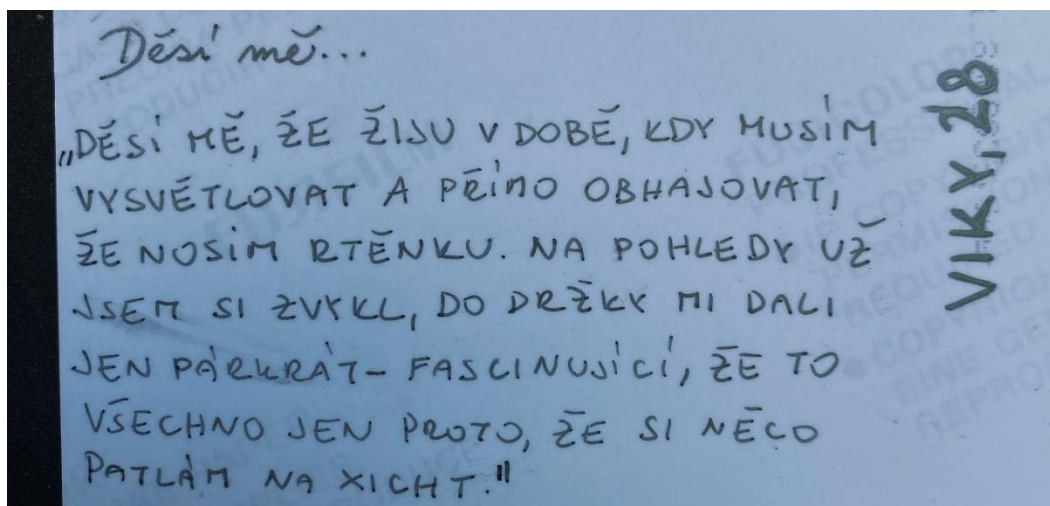 Děsí mě...
„DĚSÍ MĚ, ŽE ŽIJU V DOBĚ, KDY MUSÍM
VYSVĚTLOVAT A PŘÍMO OBHAJOVAT,
ŽE NOSÍM RTĚNKU. NA POHLEDY UŽ
JSEM SI ZVYKL, DO DRŽKY MI DALI
JEN PÁRKRÁT – FASCINUJÍCÍ, ŽE TO
VŠECHNO JEN PROTO, ŽE SI NĚCO
PATLÁM NA XICHT."
VIKY, 28